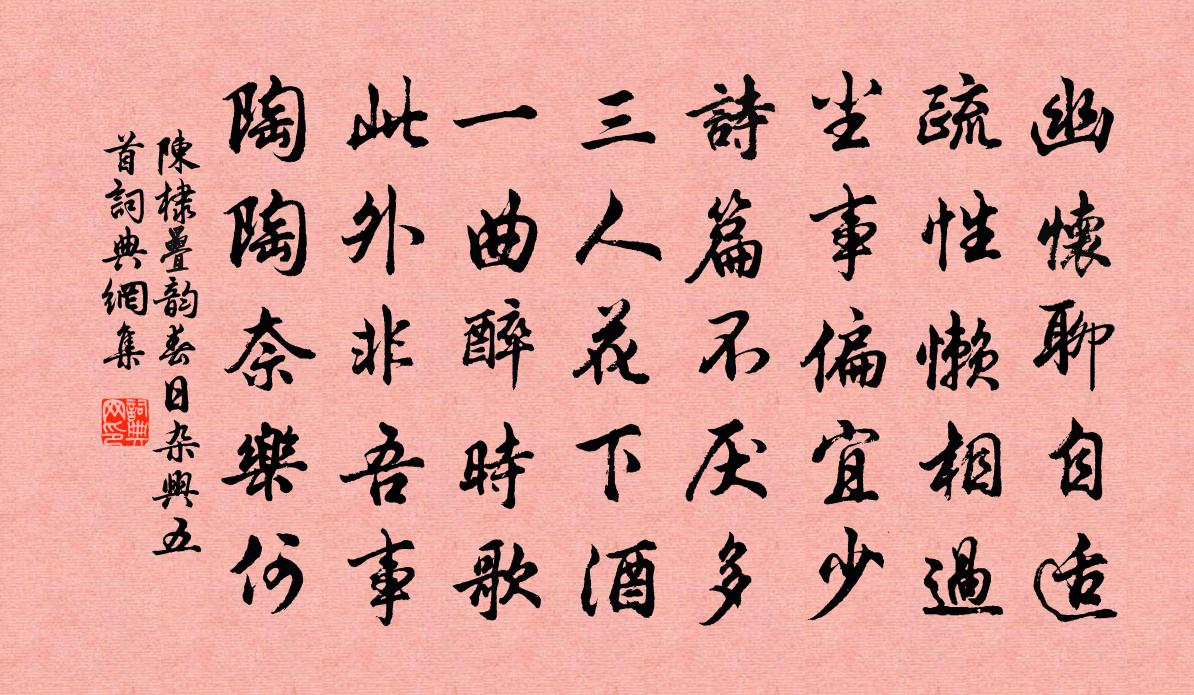 幽懷聊自适
疏性懶相過
尘事偏宜少
詩篇不厌多
三人花下酒
一曲醉時歌
此外非吾事
陶陶奈樂何
陳棣疊韵春日杂興五
首詞典網集
詞典
网印